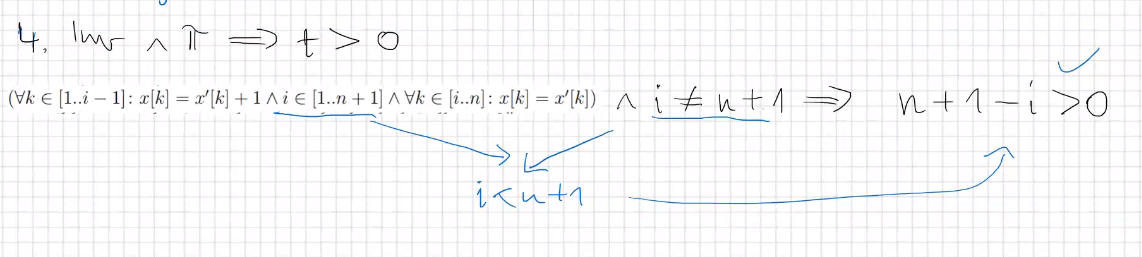 4. Inv ∧ π ⟹ t > 0
(∀k ∈ [1..i − 1]: x[k] = x′[k] + 1 ∧ i ∈ [1..n + 1] ∧ ∀k ∈ [i..n]: x[k] = x′[k]) ∧ i ≠ n+1 ⟹ n+1−i >0
i<n+1